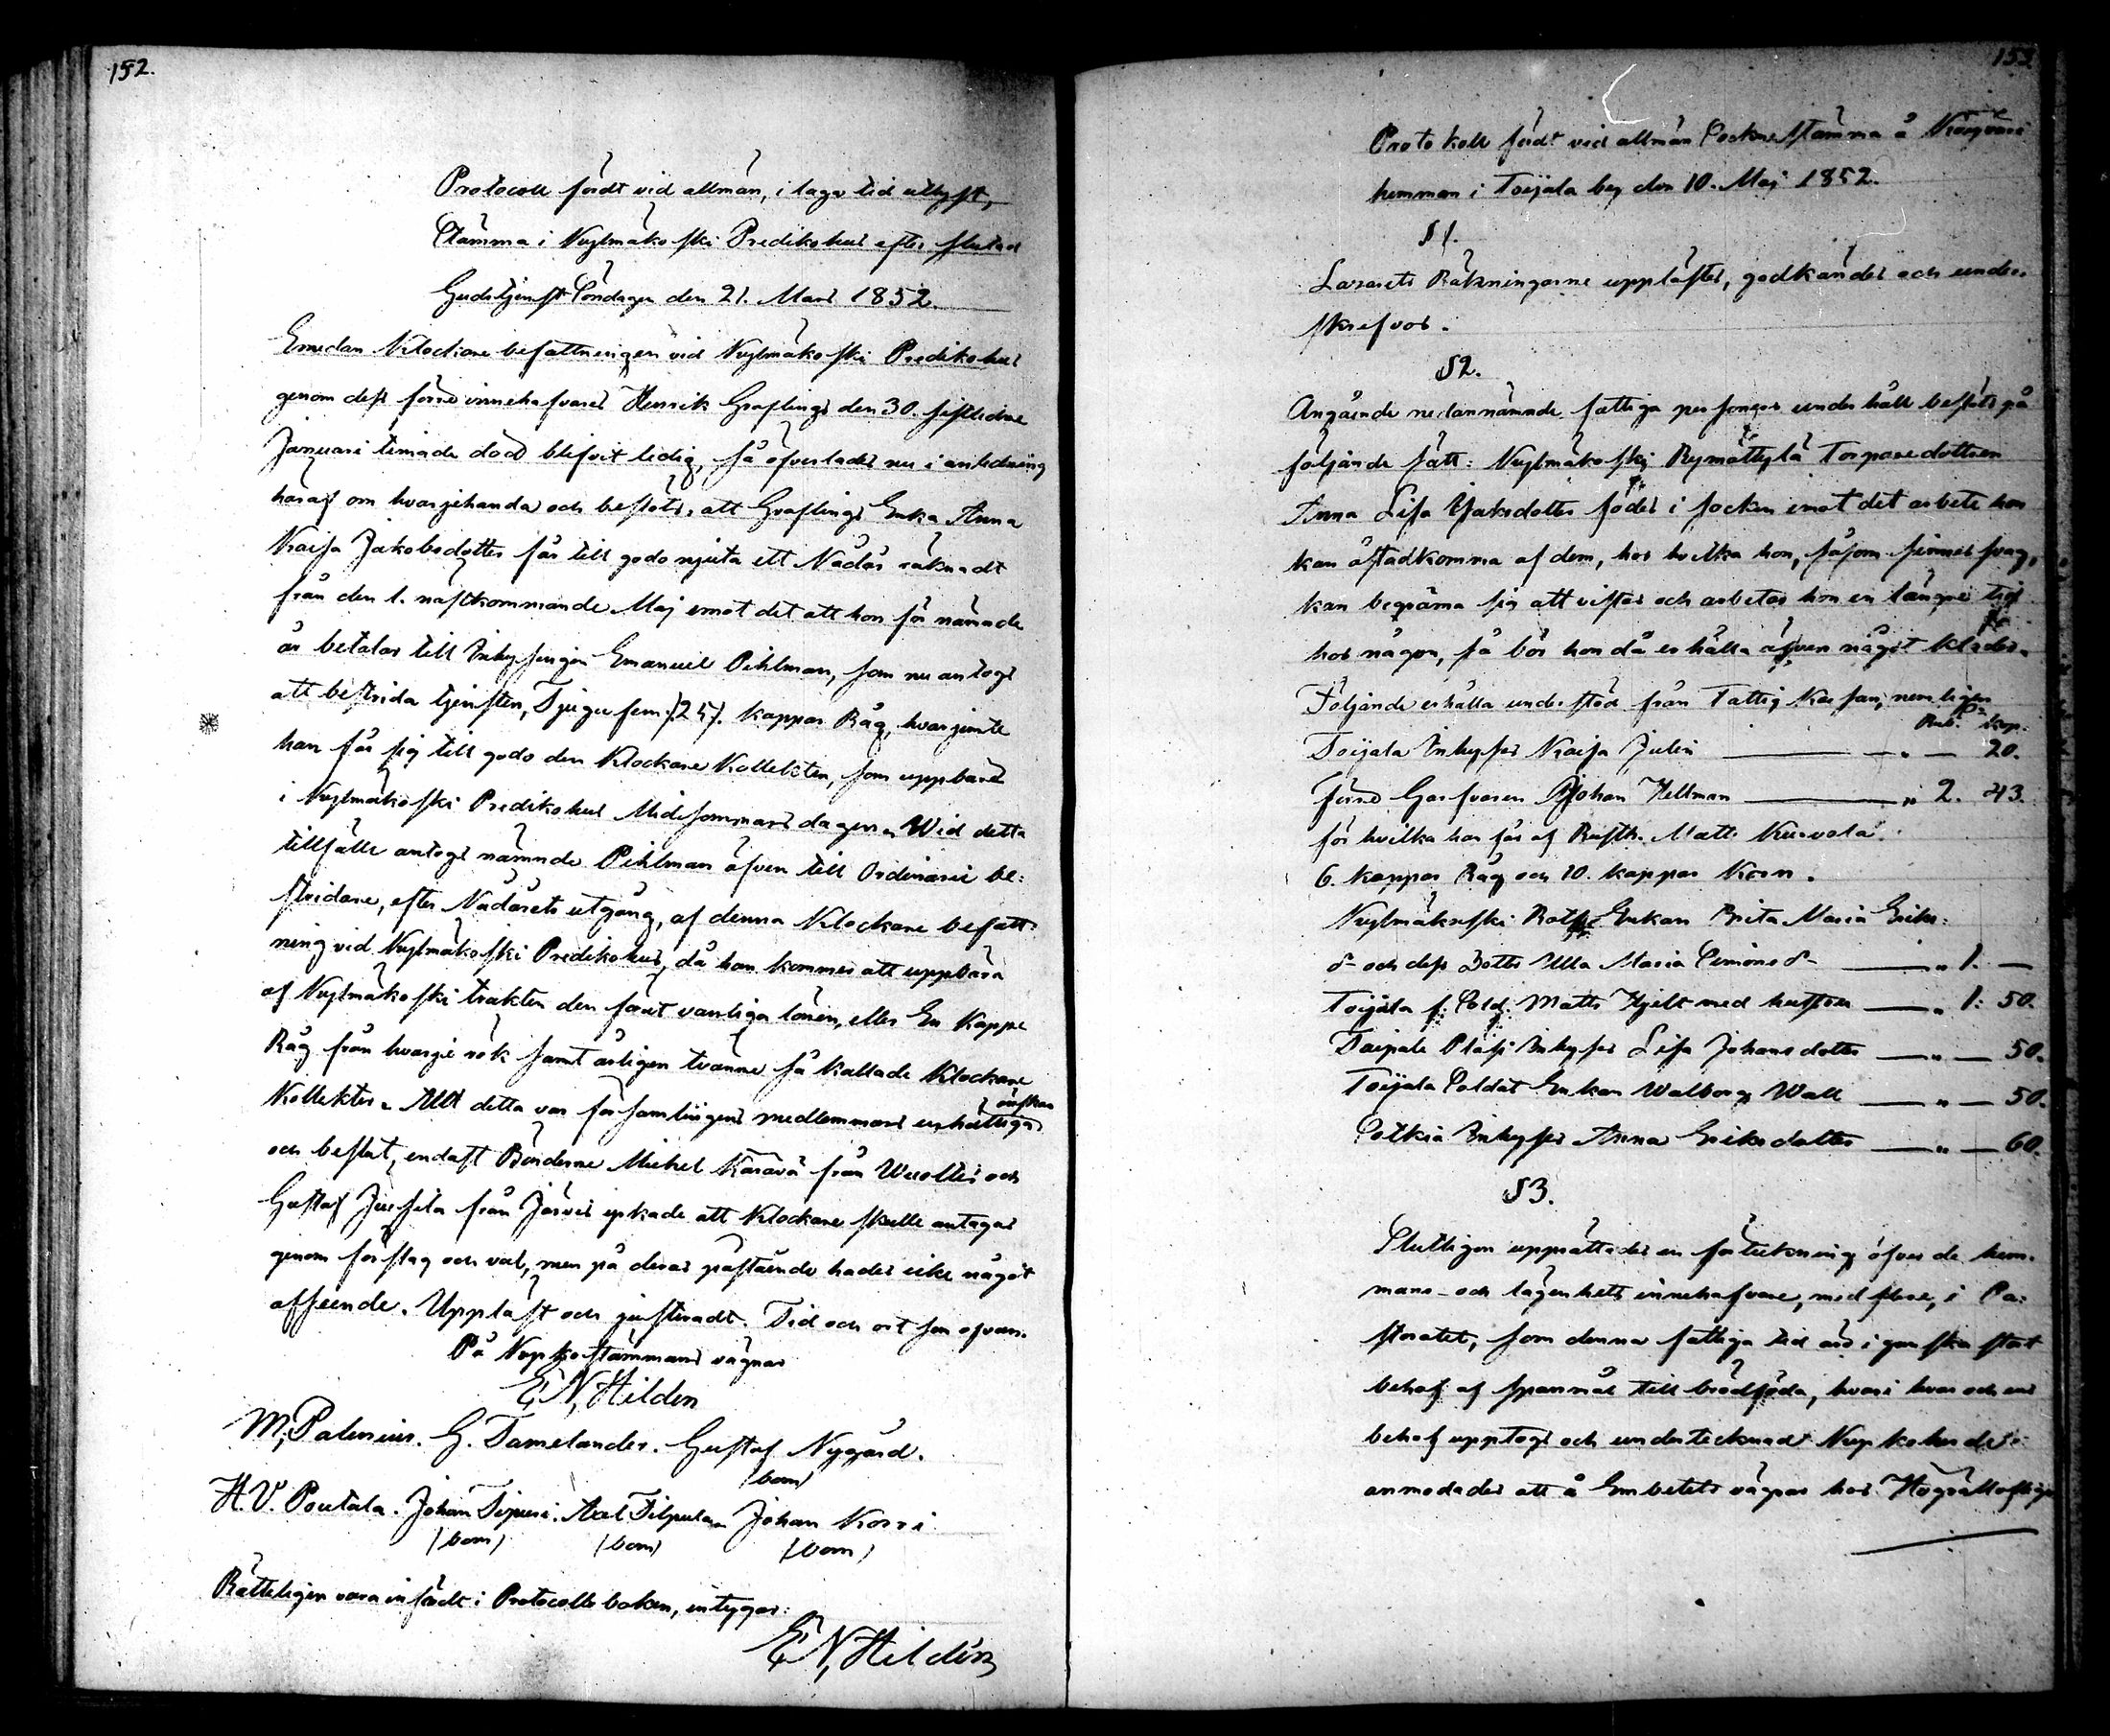 152.
Protocoll fördt vid allmän, i laga tid utlyst,
Stämma i Nuylmäkoski Predikohus efter slutad
Gudstjenst Söndagen den 21. Mars 1852.
Emedan Klockare befattningen vid Nuylmäkoski Predikohus
genom dess förre innehafvares Henrik Graflings den 30. sistledne
Januari timade död blifvit ledig, så öfverlades nu i anledning
häraf om hvarjehanda och beslöts, att Graflings Enka Anna
Kaisa Jakobsdotter får till godo njuta ett Nådår räknadt
från den 1. nästkommande Maj emot det att hon för nämde
år betalar till Inhysingen Emanuel Pihlman, som nu antogs
att bestrida tjensten, Tjugu fem /:25:/ kappar Råg, hvarjemte
han får sig till godo den Klockare Kollekten, som uppbäres
i Nuylmäkoski Predikohus Midsommarsdagen. Wid detta
tillfälle antogs nämnde Pihlman äfven till Ordinarie be-
stridare, efter Nådårets utgång, af denna Klockare befatt-
ning vid Nuylmäkoski Predikohus, då han kommer att uppbära
af Nuylmäkoski trakten den förut vanliga lönen, eller En Kappe
Råg från hvarje rök samt årligen tvänne så kallade Klockare
Kollekter. Allt detta var församlingens medlemmars enhälliga önskan
och beslut, endast Bönderne Michel Kärävä från Wuolle och
Gustaf Jussila från Järvis yrkade att Klockare skulle antagas
genom förslag och val, men på deras påstående hades icke något
afseende. Uppläst och justeradt. Tid och ort som ofvan.
På Sockenstämmans vägnar
E N, Hilden
M, Palenius. G. Tamelander. Gustaf Nygård.
(bom)
H. V. Poutala. Johan Sipuri. Axel Filpula. Johan Korri
(bom) (bom) (bom)
Rätteligen vara infördt i Protocolls boken, intygar:
E N, Hildén
153
Protokoll fördt vid allmän Sockne Stämma å
hemman i Toijala by den 10. Maj 1852.
§ 1.
Lazarets Räkningarne upplästes, godkändes och under-
skrefvos.
§ 2.
Angående nedannämnde fattiga personers underhåll beslöts på
följande sätt: Nuylmäkoski Rymättylä Torparedottren
Anna Lisa Isaksdotter födes i socken emot det arbete hon
kan åstadkomma af dem, hos hvilka hon, såsom sinnessvag,
kan beqväma sig att vistas och arbetar hon en längre tid
hos någon, så bör hon då erhålla äfven något kläder.
Följande erhålla understöd från Fattig Kassan, nemligen
Rub. Kop.
Toijala Inhyses Kaisa Julin — „ — 20.
förre Garfvaren Johan Hellman — „ 2. 43.
för hvilka han får af Rusth. Matts Kurvola
6. kappar Råg och 10. kappar Korn.
Nuylmäkoski Enkan Brita Maria Eriks-
d- och dess Dotter Ulla Maria Simonsd- — „ 1. —
Toijala f. Sold. Matts Hjelt med hustru — „ 1: 50.
Taipale Inhyses Lisa Johansdotter — „ — 50.
Toijala Soldat Enkan Walborg Wall — „ — 50.
Sotkia Inhyses Anna Eriksdotter — „ — 60.
§ 3.
Slutligen upprättades en förteckning öfver de hem-
mans- och lägenhets innehafvare, med flere, i Pa-
storatet, som denna fattiga tid äro i ganska stort
behof af spannmål till brödföda, hvari hvar och ens
behof upptogs och undertecknad
anmodades att å Embetets vägnar hos Högvällofliga